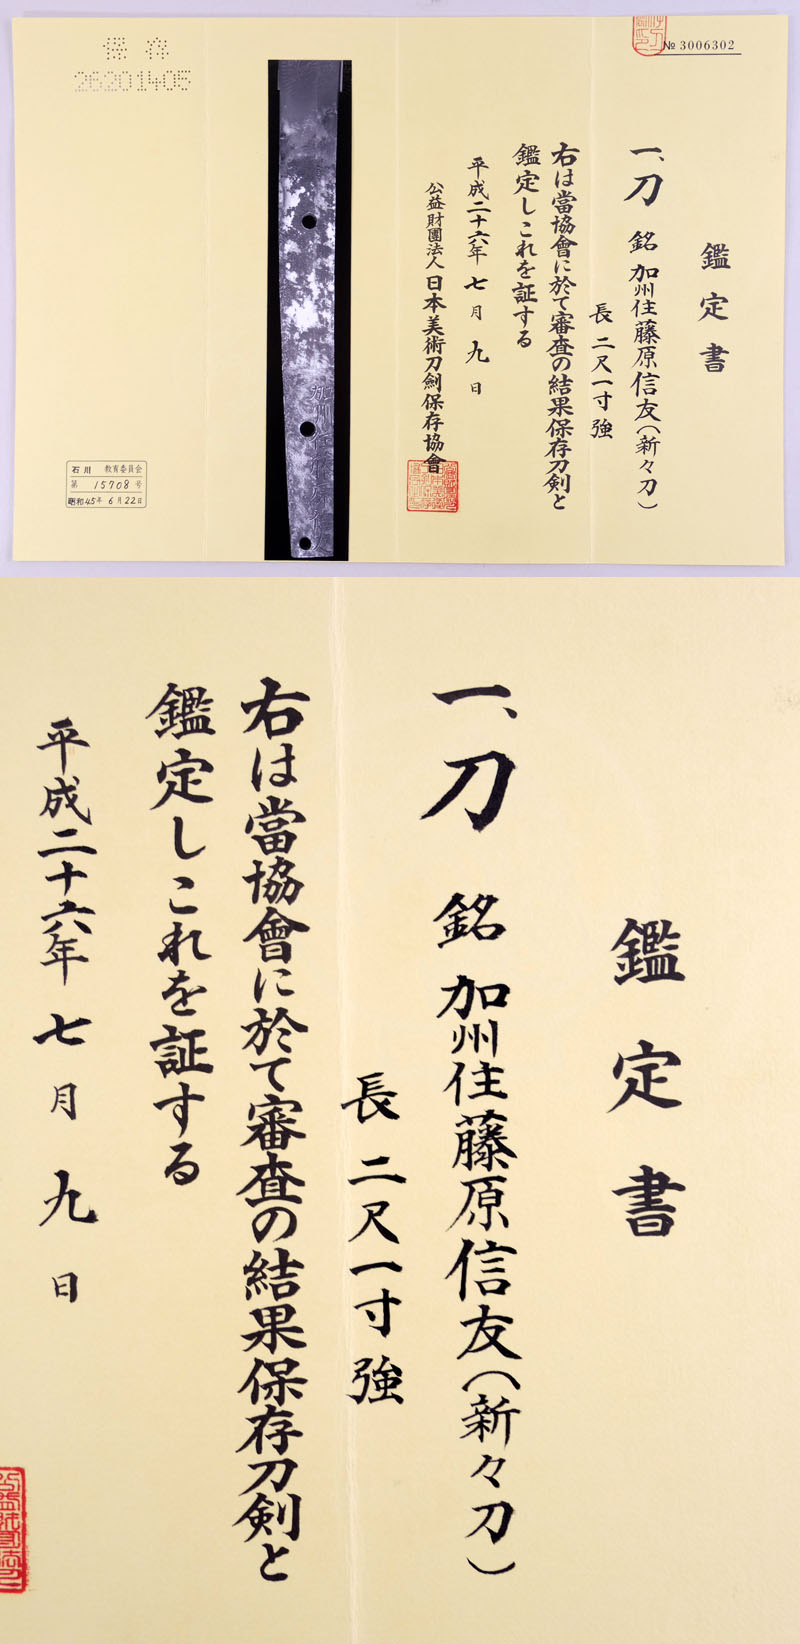 № 3006302
鑑定書
一、刀 銘 加州住藤原信友(新々刀)
長 二尺一寸強
右は當協會に於て審査の結果保存刀剣と
鑑定しこれを証する
平成二十六年 七月 九日
公益財團法人 日本美術刀劍保存協會
保存
26201405
加州住藤原信友
石川 教育委員会
第 15708 号
昭和45年 6月22日
鑑定書
一、刀 銘 加州住藤原信友(新々刀)
長 二尺一寸強
右は當協會に於て審査の結果保存刀剣と
鑑定しこれを証する
平成二十六年 七月 九日